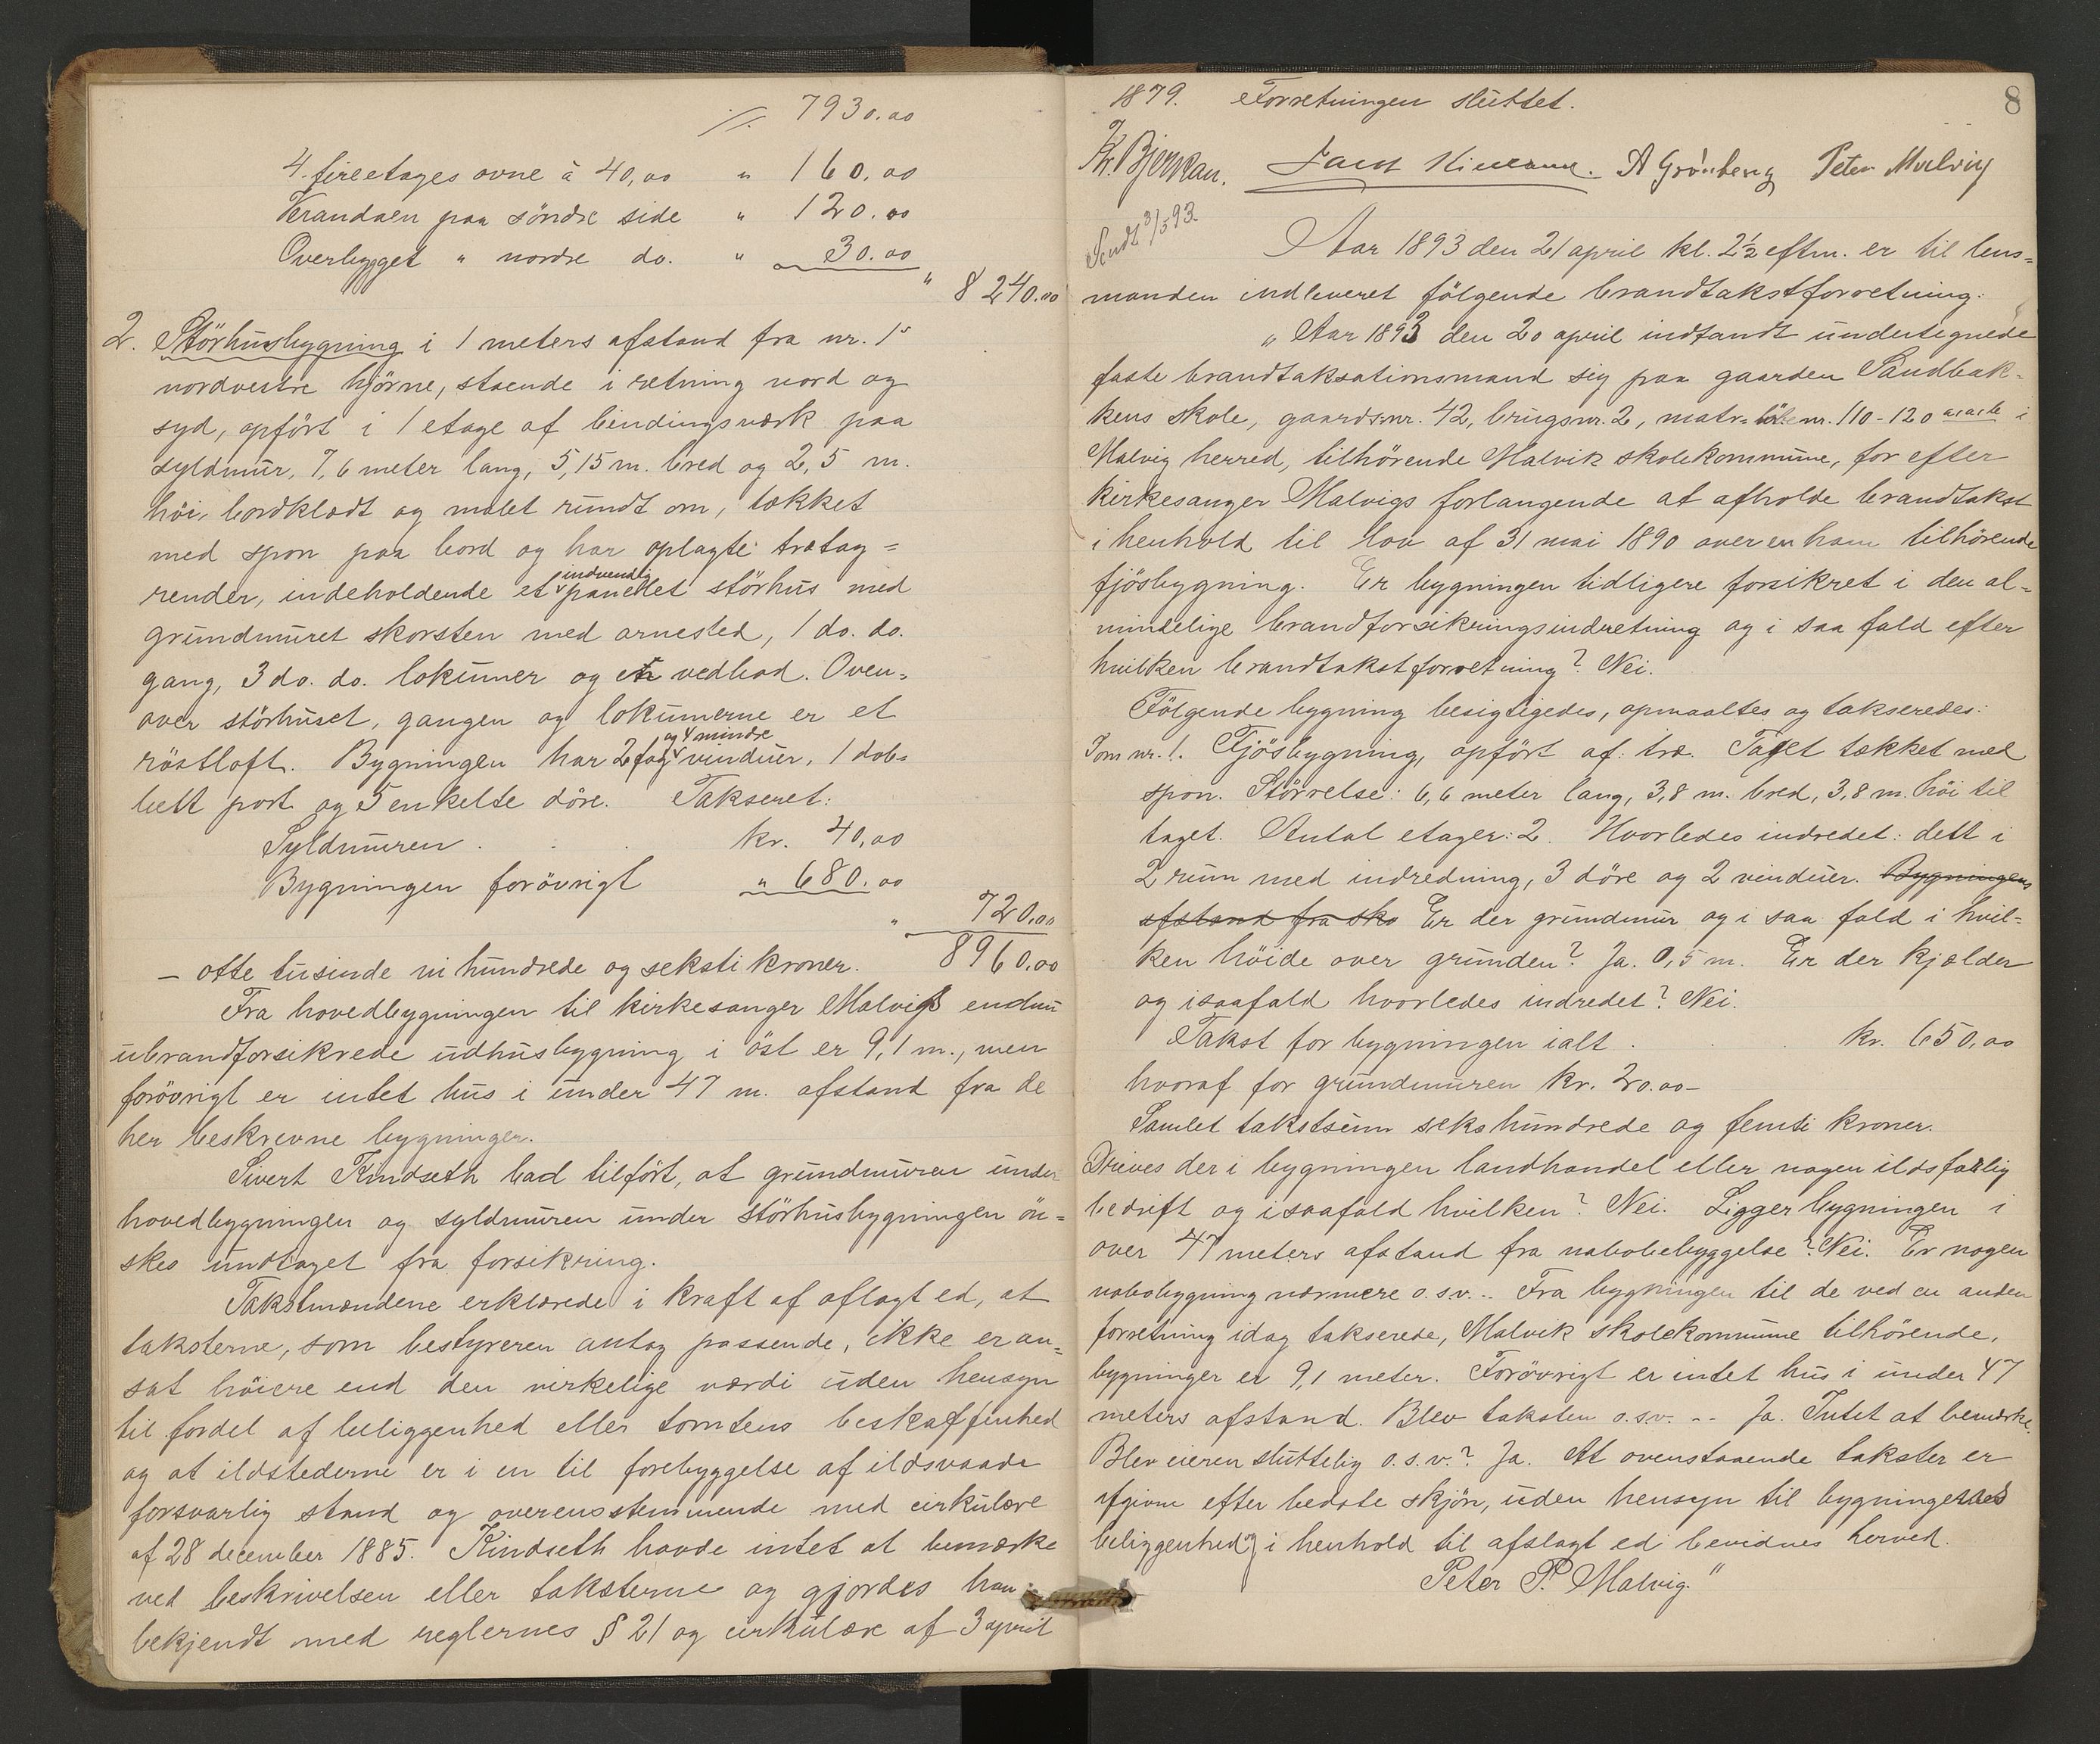 ./. 7930.00
4. fireetages ovne à 40,00 " 160.00
Verandaen paa söndre side " 120.00
Overbygget " nordre do. " 30.00
" 8240.00
2. Störhusbygning i 1 meters afstand fra nr. 1s
nordvestre hjörne, staende i retning nord og
syd, opfört i 1 etage af bindingsværk paa
syldmur, 7,6 meter lang, 5,15 m. bred og 2,5 m.
höi, bordklædt og malet rundt om, tækket
med spon paa bord og har oplagte trætag=
render, indeholdende et indvendig panelet störhus med
grundmuret skorsten med arnested, 1 do. do.
gang, 3 do. do. lokumer og et vedbod. Oven=
over störhuset, gangen og lokumerne er et
röstloft. Bygningen har 2 fag og 4 mindre vinduer, 1 dob=
belt port og 5 enkelte döre. Takseret:
Syldmuren . . . kr. 40,00
Bygningen forövrigt " 680.00
" 720,00
— otte tusinde ni hundrede og seksti kroner. 8960,00
Fra hovedbygningen til kirkesanger Malvigs endnu
ubrandforsikrede udhusbygning i öst er 9,1 m., men
forövrigt er intet hus i under 47 m. afstand fra de
her beskrevne bygninger.
Sivert Kindseth bad tilfört, at grundmuren under
hovedbygningen og syldmuren under störhusbygningen ön=
skes undtaget fra forsikring.
Takstmændene erklærede i kraft af aflagt ed, at
taksterne, som bestyreren antog passende, ikke er an=
sat höiere end den virkelige værdi uden hensyn
til fordel af beliggenhed eller tomtens beskaffenhed
og at ildstederne er i en til forebyggelse af ildsvaade
forsvarlig stand og overensstemmende med cirkulære
af 28 december 1885. Kindseth havde intet at bemærke
ved beskrivelsen eller taksterne og gjordes han
bekjendt med reglernes § 21 og cirkulære af 3 april
8
1879. Forretningen sluttet.
Kr. Bjerkan. A Grönberg Peter Malvig
Sendt 3/5 93.
Aar 1893 den 21 april kl. 2½ eftm. er til lens=
manden indleveret fölgende brandtakstforretning:
" Aar 1893 den 20 april indfandt undertegnede
faste brandtaksationsmand sig paa gaarden Sandbak=
kens skole, gaardsnr. 42, brugsnr. 2, matr= löbenr. 110-120 i
Malvig herred, tilhörende Malvik skolekommune, for efter
kirkesanger Malvigs forlangende at afholde brandtakst
i henhold til lov af 31 mai 1890 over en ham tilhörende
fjösbygning. Er bygningen tidligere forsikret i den al=
mindelige brandforsikringsindretning og i saa fald efter
hvilken brandtakstforretning? Nei.
Fölgende bygning besigtigedes, opmaaltes og takseredes:
Som nr. 1. Fjösbygning, opfört af: træ. Taget tækket med
spon. Störrelse: 6,6 meter lang, 3,8 m. bred, 3,8 m. höi til
taget. Antal etager: 2. Hvorledes indredet: delt i
2 rum med indredning, 3 döre og 2 vinduer. Bygningens
afstand fra sko Er der grundmur og i saa fald i hvil=
ken höide over grunden? Ja. 0,5 m. Er der kjælder
og isaafald hvorledes indredet? Nei.
Takst for bygningen ialt . . . kr. 650,00
hvoraf for grundmuren kr. 20.00—
Samlet takstsum seks hundrede og femti kroner.
Drives der i bygningen landhandel eller nogen ildsfarlig
bedrift og isaafald hvilken? Nei. Ligger bygningen i
over 47 meters afstand fra nabobebyggelse? Nei. Er nogen
nabobygning nærmere o.s.v. -- Fra bygningen til de ved en anden
forretning idag takserede, Malvik skolekommune tilhörende,
bygninger er 9,1 meter. Forövrigt er intet hus i under 47
meters afstand. Blev taksten o.s.v. -- Ja. Intet at bemærke.
Blev eieren sluttelig o.s.v.? Ja. At ovenstaaende takster er
afgivne efter bedste skjön, uden hensyn til bygningernes
beliggenhed og i henhold til aflagt ed bevidnes herved.
Peter P. Malvig."